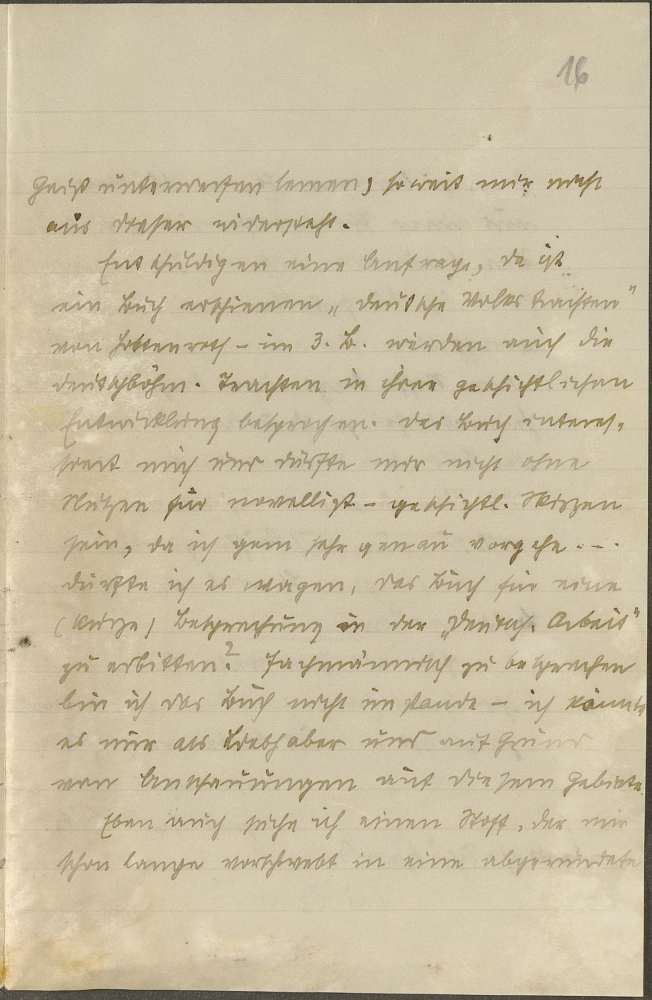 16
Geist unterwerfen lernen, soweit mir nicht
aus dieser widersteht.
Entschuldigen eine Anfrage, da ist
ein Buch erschienen „Deutsche Volkstrachten"
von Hottenroth - im 3. B. werden auch die
deutschböhm. Trachten in ihrer geschichtlichen
Entwicklung besprochen. Das Buch interes-
siert mich und dürfte mir nicht ohne
Nutzen für novellist-geschichtl. Skizzen
sein, da ich gern sehr genau vorgehe. -.
Dürfte ich es wagen, das Buch für eine
(kurze) Besprechung in der „Deutsch. Arbeit"
zu erbitten? Fachmännisch zu besprechen
bin ich das Buch nicht im stande - ich könnte
es nur als Liebhaber und auf Grund
von Anschauungen auf diesem Gebiete.
Eben auch suche ich einen Stoff, der mir
schon lange vorschwebt in eine abgerundete